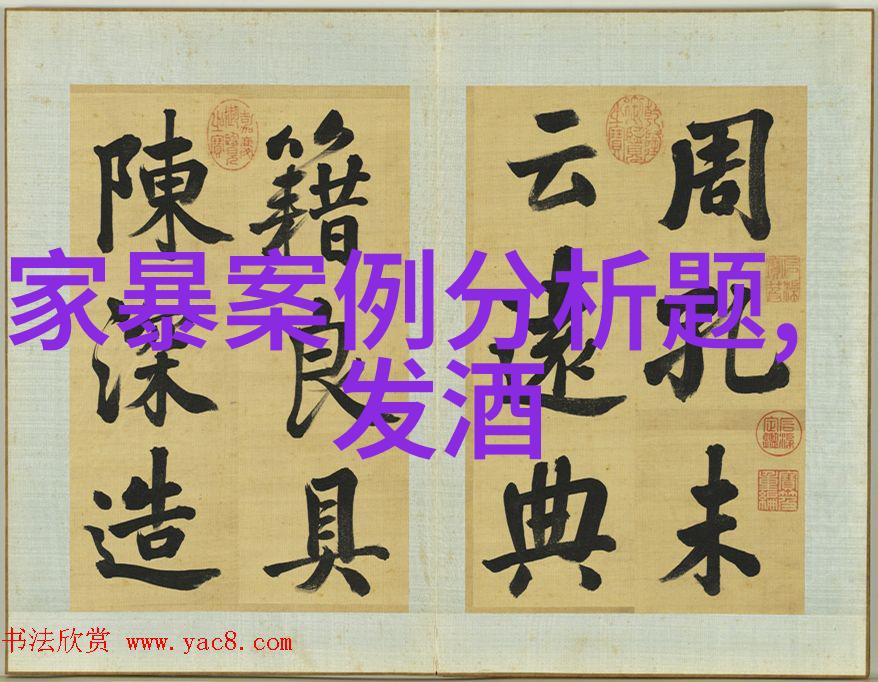 周孔未
云遠典
籍良具
陳深造
家暴案例分析题,
发酒
书法欣赏 www.yac8.com